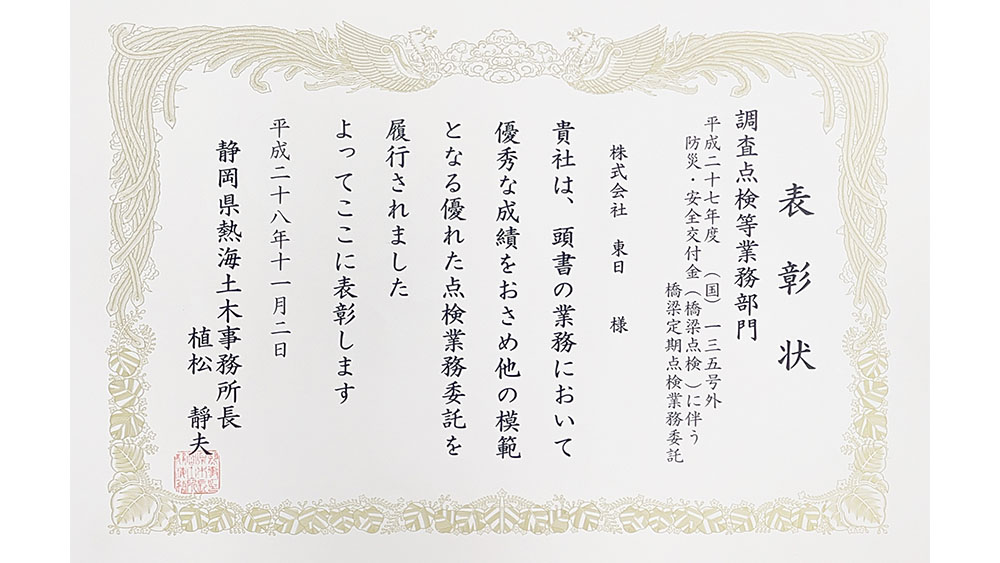 表彰状
調査点検等業務部門
平成二十七年度 (国)一三五号外
防災・安全交付金(橋梁点検)に伴う
橋梁定期点検業務委託
株式会社 東日 様
貴社は、頭書の業務において
優秀な成績をおさめ他の模範
となる優れた点検業務委託を
履行されました
よってここに表彰します
平成二十八年十一月二日
静岡県熱海土木事務所長
植松 靜夫